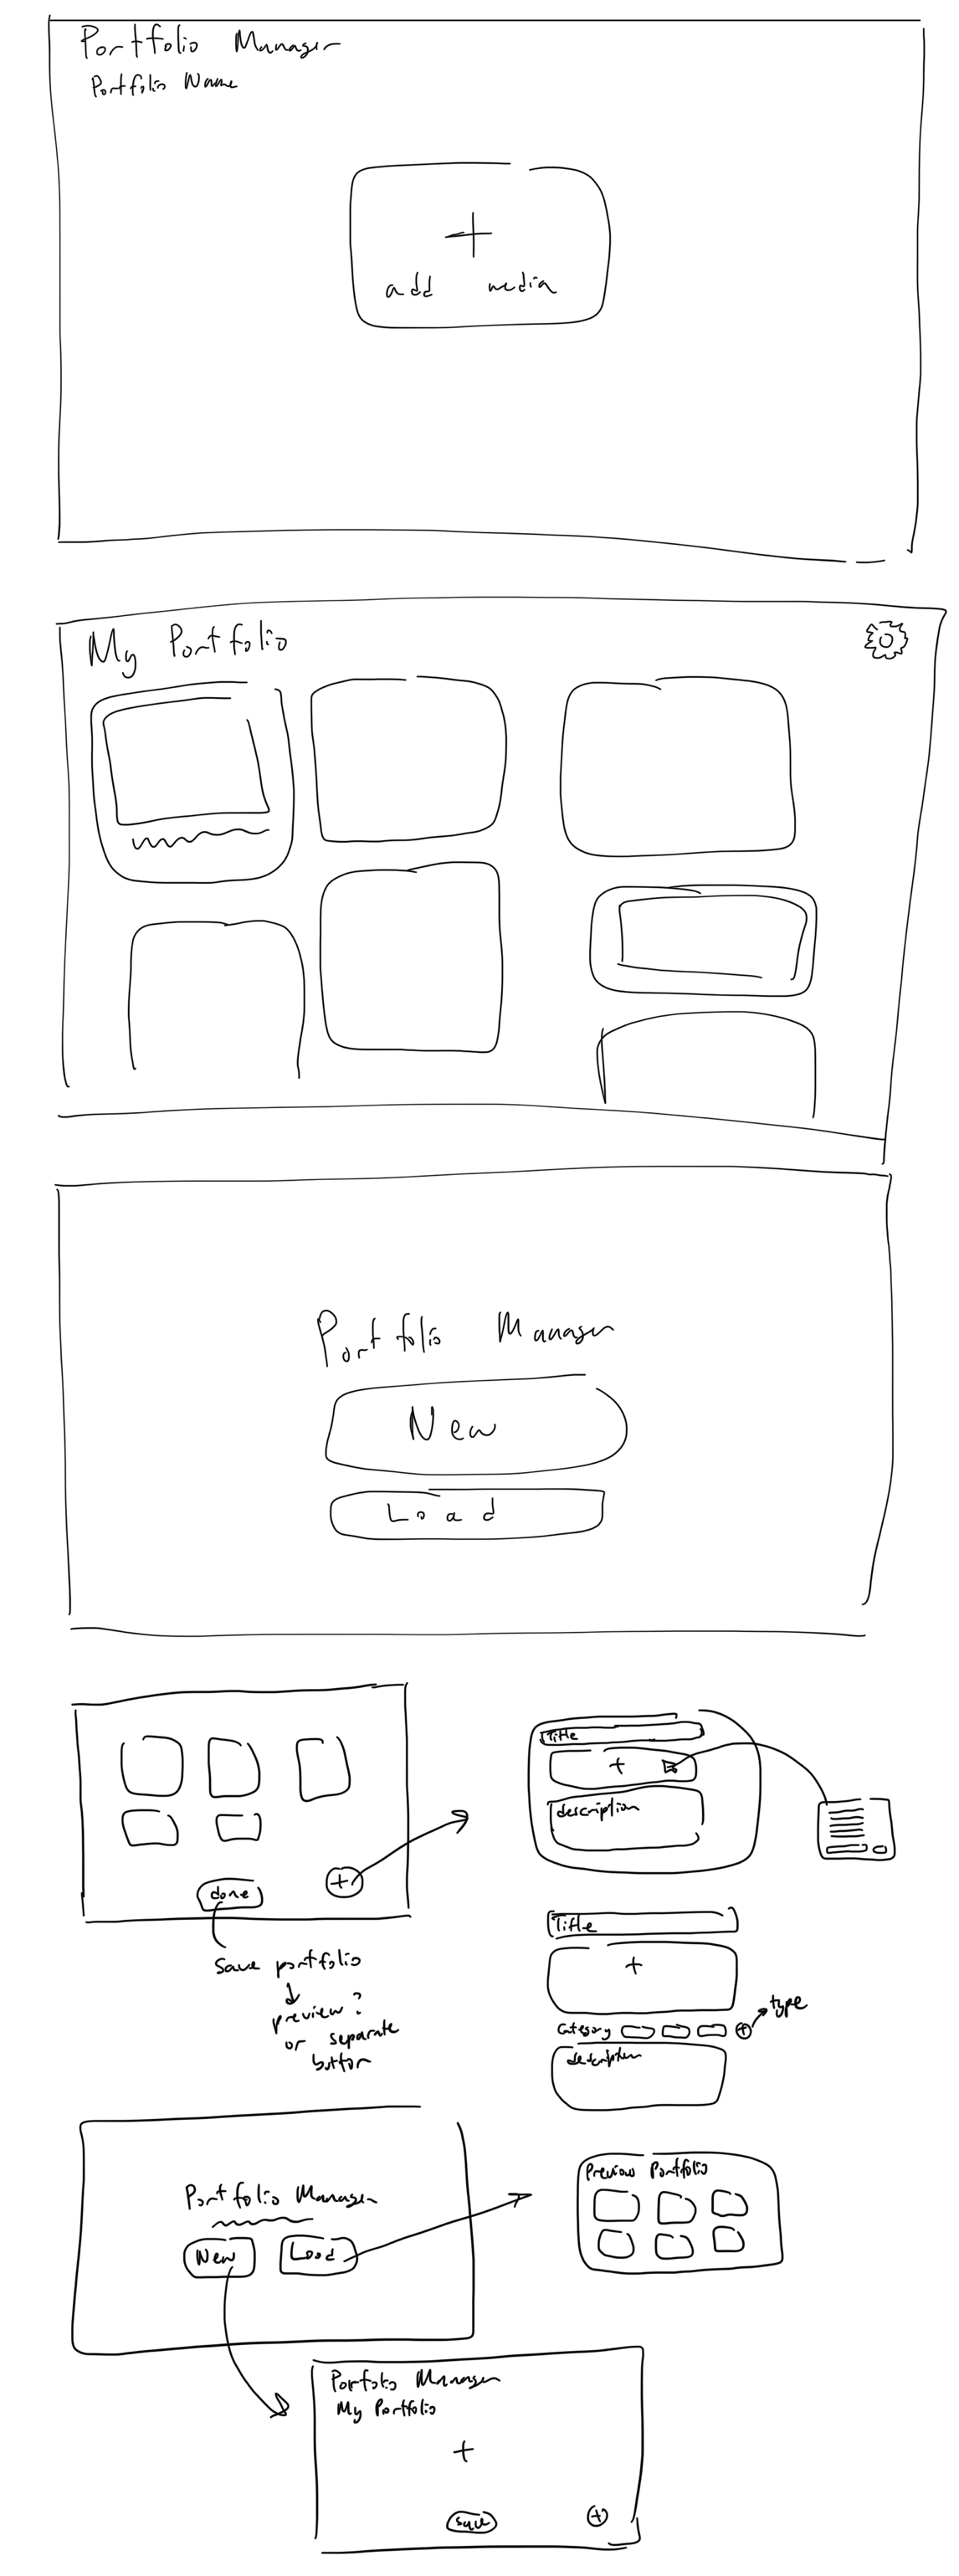 Portfolio Manager
Portfolio Name
+
add media
My Portfolio
Portfolio Manager
New
Load
done
+
Save portfolio
preview?
or separate
button
Title
+
description
Title
+
Category + type
description
Portfolio Manager
New Load
Preview Portfolio
Portfolio Manager
My Portfolio
+
save +